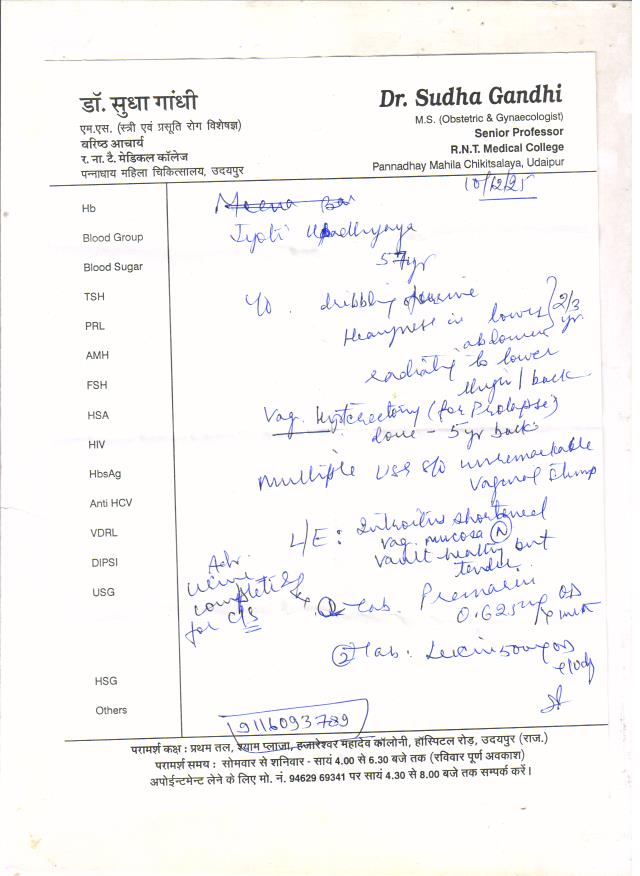 डॉ. सुधा गांधी
एम.एस. (स्त्री एवं प्रसूति रोग विशेषज्ञ)
वरिष्ठ आचार्य
र. ना. टै. मेडिकल कॉलेज
पन्नाधाय महिला चिकित्सालय, उदयपुर
Dr. Sudha Gandhi
M.S. (Obstetric & Gynaecologist)
Senior Professor
R.N.T. Medical College
Pannadhay Mahila Chikitsalaya, Udaipur
10/12/25
Hb
Blood Group
Blood Sugar
TSH
PRL
AMH
FSH
HSA
HIV
HbsAg
Anti HCV
VDRL
DIPSI
USG
HSG
Others
Meena Bai
Jyoti Upadhyaya
57yr
dribbling of urine
Heavyness in lower abdomen } 2/3 yr.
radiating to lower
back
Vag. Hysterectomy (for Prolapse)
done - 5 yr back
Multiple USG S/O unremarkable
Vaginal Stump
L/E: Introitus shortened
vag. mucosa (N)
vault healthy but
tender.
Adv.
urine
complete &
for C/S
Rx
① Tab. Premarin
0.625mg OD
② Tab.
500mg OD
9116093789
परामर्श कक्ष : प्रथम तल, श्याम प्लाजा, हजारेश्वर महादेव कॉलोनी, हॉस्पिटल रोड़, उदयपुर (राज.)
परामर्श समय : सोमवार से शनिवार - सायं 4.00 से 6.30 बजे तक (रविवार पूर्ण अवकाश)
अपोईन्टमेन्ट लेने के लिए मो. नं. 94629 69341 पर सायं 4.30 से 8.00 बजे तक सम्पर्क करें।